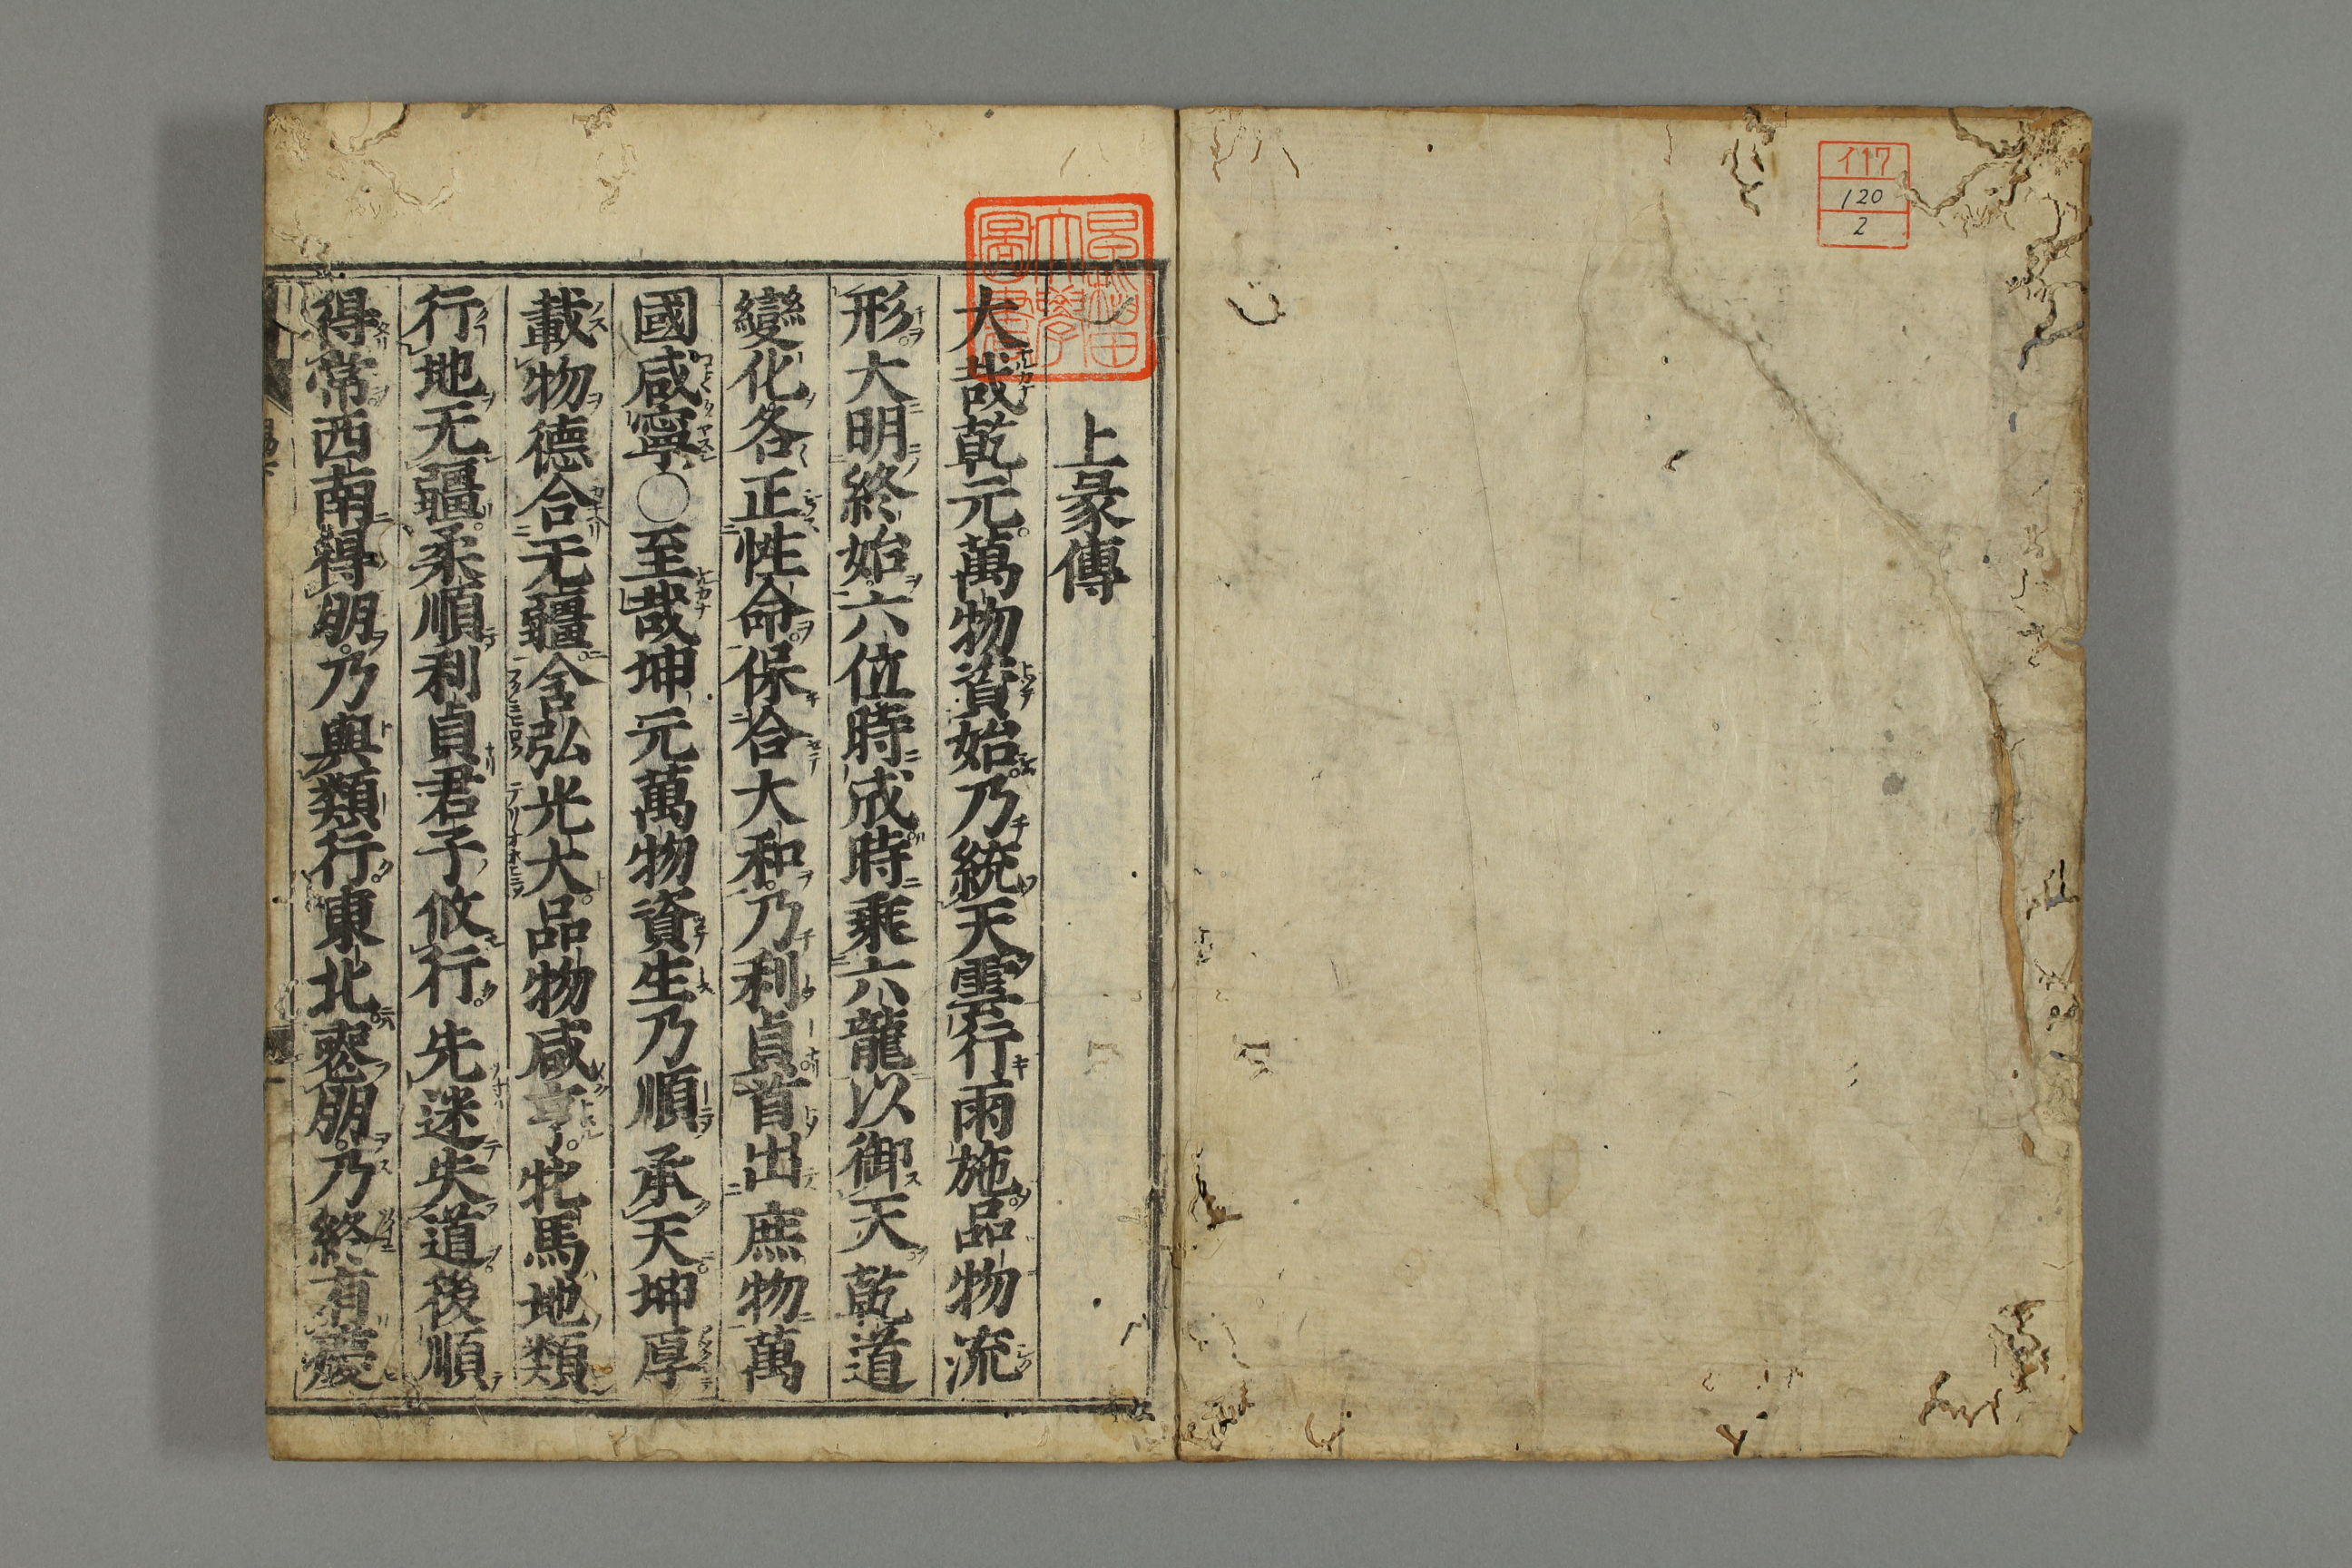 イ17
120
2
早稲田
大學
圖書
上彖傳
大哉乾元萬物資始乃統天雲行雨施品物流
形大明終始六位時成時乘六龍以御天乾道
變化各正性命保合大和乃利貞首出庶物萬
國咸寧○至哉坤元萬物資生乃順承天坤厚
載物德合无疆含弘光大品物咸亨牝馬地類
行地无疆柔順利貞君子攸行先迷失道後順
得常西南得朋乃與類行東北喪朋乃終有慶